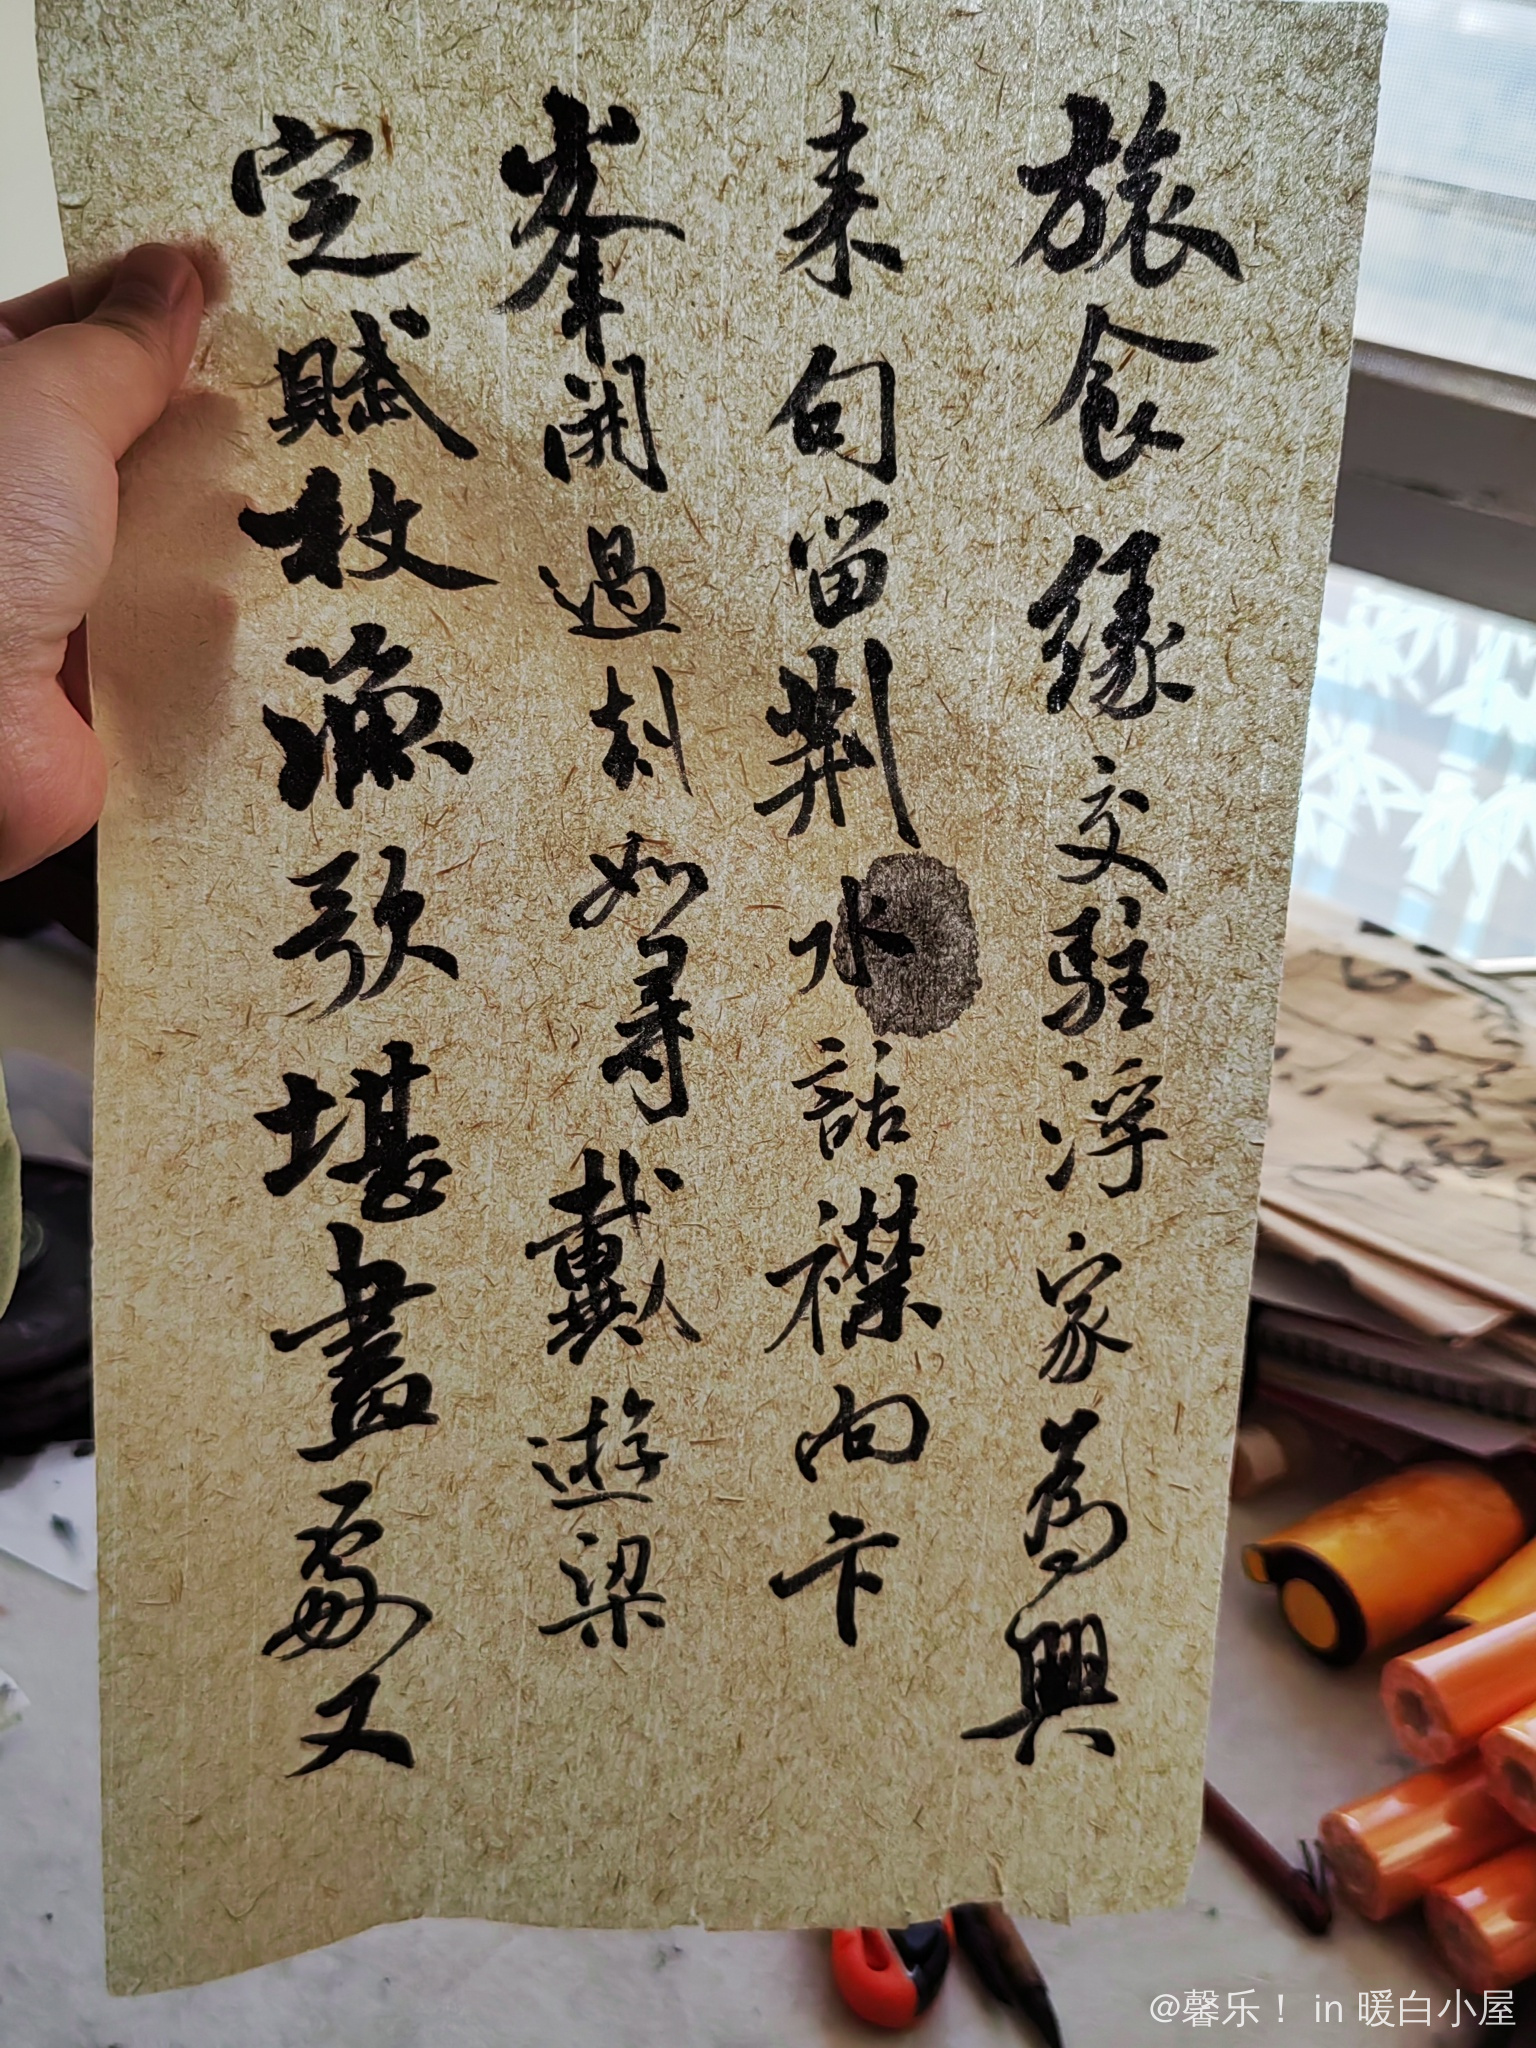 旅食緣交駐浮家爲興
来句留荆水話襟向卞
峯開過剡如尋戴遊梁
定賦枚漁歌堪畫處又
@馨乐！ in 暖白小屋